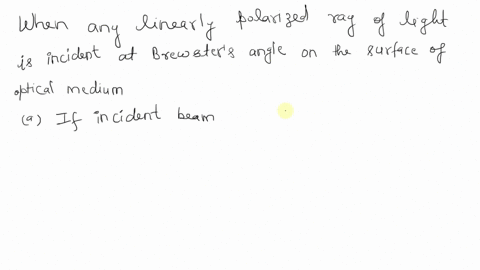 When any linearly polarized ray of light
is incident at Brewster's angle on the surface of
optical medium
(a) If incident beam